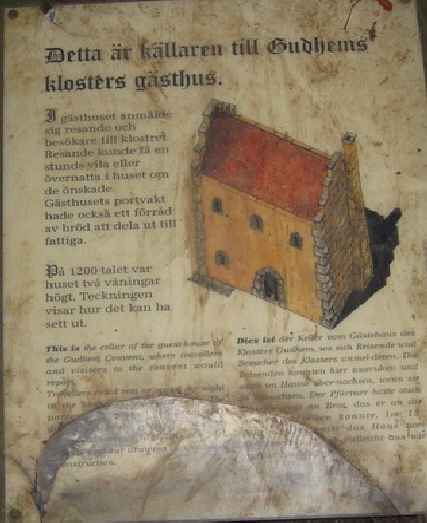 Detta är källaren till Gudhems
klosters gästhus.
I gästhuset anmälde
sig resande och
besökare till klostret.
Resande kunde få en
stunds vila eller
övernatta i huset om
de önskade.
Gästhusets portvakt
hade också ett förråd
av bröd att dela ut till
fattiga.
På 1200-talet var
huset två våningar
högt. Teckningen
visar hur det kan ha
sett ut.
This is the cellar of the guesthouse of
the Gudhem Convent, where travellers
and visitors to the convent would
report.
Travellers could rest or spend the night
in the
construction.
Dies ist der Keller vom Gästehaus des
Klosters Gudhem, wo sich Reisende und
Besucher des Klosters anmeldeten. Die
Reisenden konnten hier ausruhen und
auch im Hause übernachten, wenn sie
Der Pförtner hatte auch
an Brot, das er an die
konnte. Im 13
das Haus
aus wie